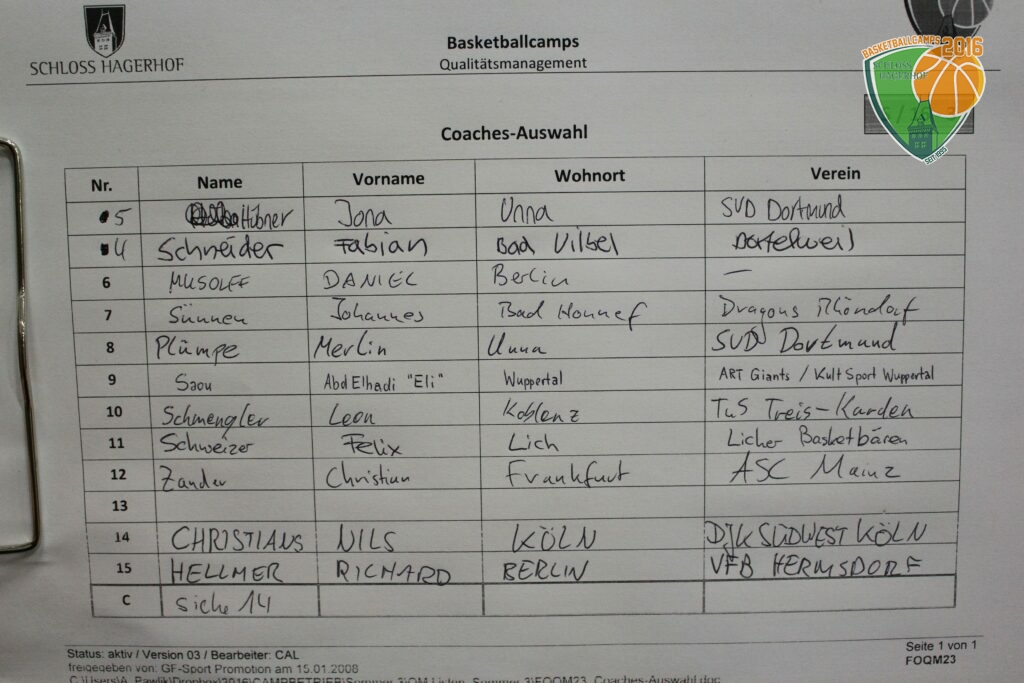 SCHLOSS HAGERHOF
Basketballcamps
Qualitätsmanagement
BASKETBALLCAMPS 2016
SCHLOSS
HAGERHOF
SEIT 1955
Coaches-Auswahl
Nr. Name Vorname Wohnort Verein
5 Hübner Jona Unna SVD Dortmund
4 Schneider Fabian Bad Vilbel Dortelweil
6 MUSOLFF DANIEL Berlin —
7 Sünnen Johannes Bad Honnef Dragons Rhöndorf
8 Plümpe Merlin Unna SVD Dortmund
9 Saou Abd Elhadi "Eli" Wuppertal ART Giants / Kult Sport Wuppertal
10 Schmengler Leon Koblenz TuS Treis-Karden
11 Schweizer Felix Lich Licher Basketbären
12 Zander Christian Frankfurt ASC Mainz
13
14 CHRISTIANS NILS KÖLN DJK SÜDWEST KÖLN
15 HELLMER RICHARD BERLIN VFB HERMSDORF
C siehe 14
Status: aktiv / Version 03 / Bearbeiter: CAL
Seite 1 von 1
freigegeben von: GF-Sport Promotion am 15.01.2008
FOQM23
C:\Users\A. Pawlik\Dropbox\2016\CAMPBETRIEB\Sommer 3\QM Listen Sommer 3\FOQM23 Coaches-Auswahl.doc